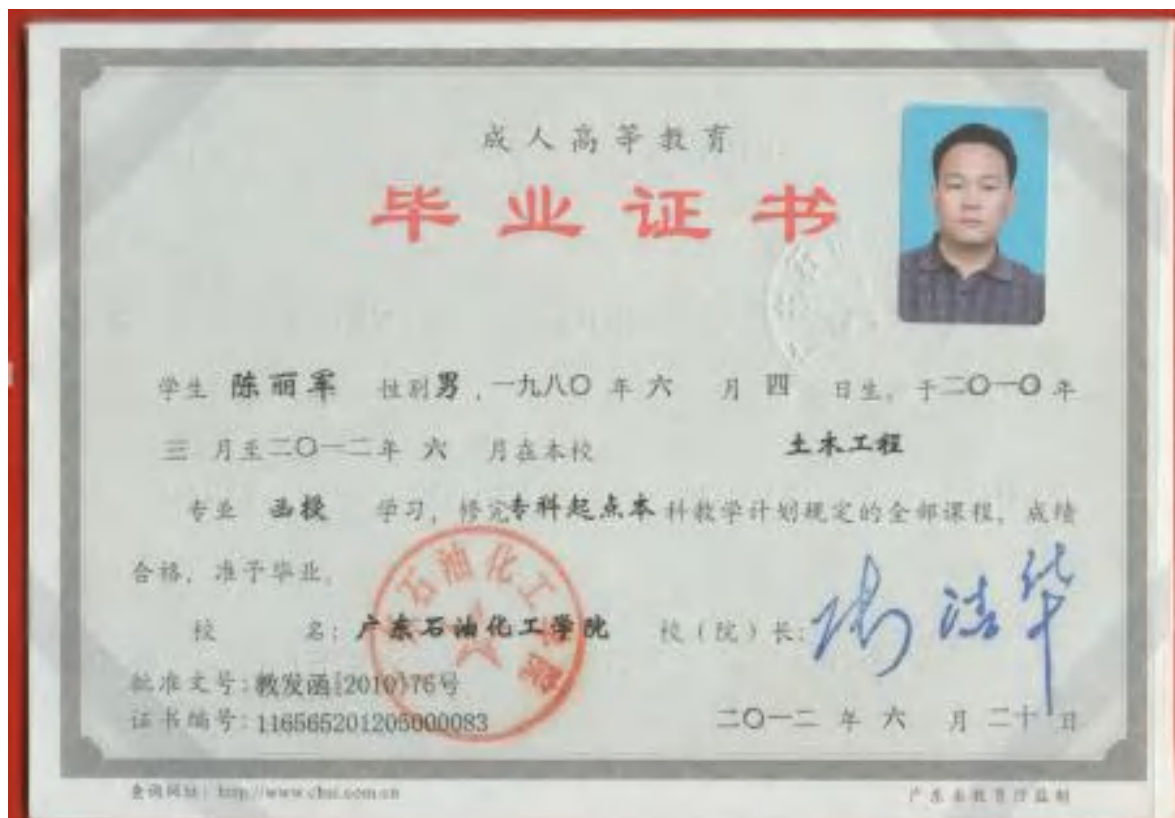 成人高等教育
毕业证书
学生 陈丽军 性别 男，一九八〇 年 六 月 四 日生，于二〇一〇 年
三 月至二〇一二年 六 月在本校 土木工程
专业 函授 学习，修完专科起点本 科教学计划规定的全部课程，成绩
合格，准予毕业。
校 名：广东石油化工学院 校（院）长：
批准文号：教发函[2010]76号
证书编号：116565201205000083
二〇一二 年 六 月 二十 日
查询网址：http://www.chsi.com.cn 广东省教育厅监制